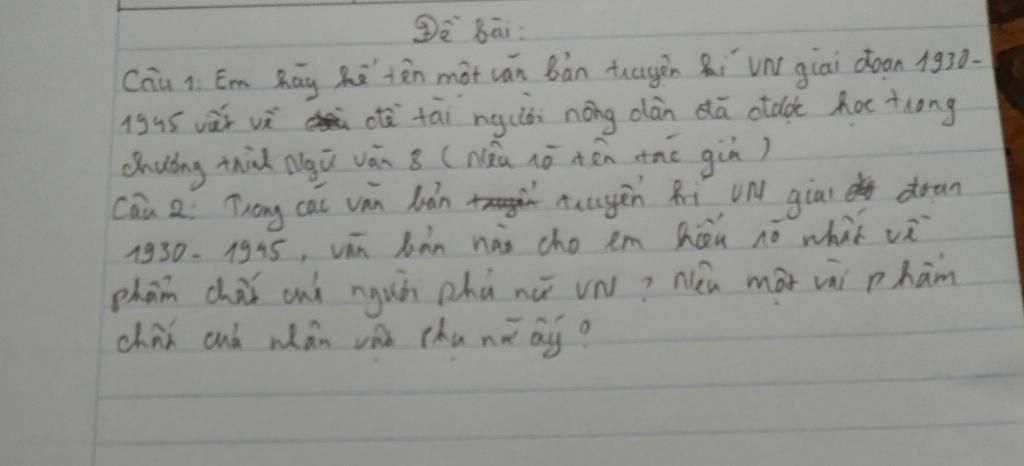 Đề bài:
Câu 1: Em hãy kể tên một văn bản truyện kí VN giai đoạn 1930-
1945 viết về đề tài người nông dân đã được học trong
chương trình Ngữ văn 8 (Nêu rõ tên tác giả)
Câu 2: Trong các văn bản truyện kí VN giai đoạn
1930-1945, văn bản nào cho em hiểu rõ nhất về
phẩm chất của người phụ nữ VN? Nêu một vài phẩm
chất của nhân vật phụ nữ ấy?